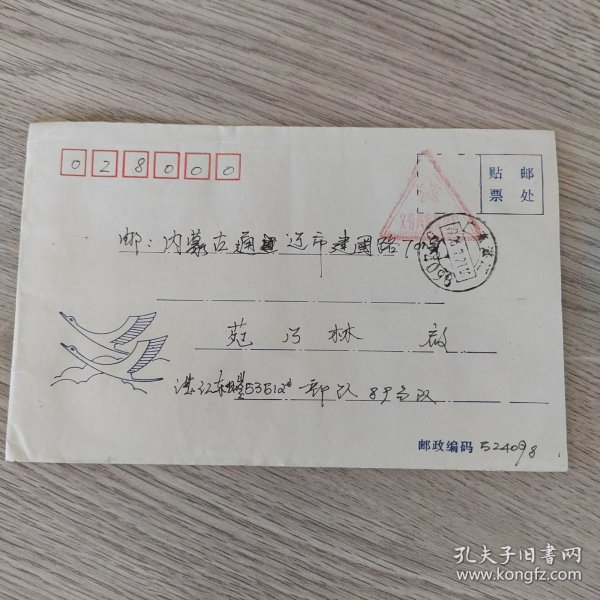 028000
贴 邮
票 处
义务兵
邮：内蒙古通辽市建国路
苑乃林 启
湛江东 53512 部队
邮政编码 524098
孔夫子旧书网
www.kongfz.com